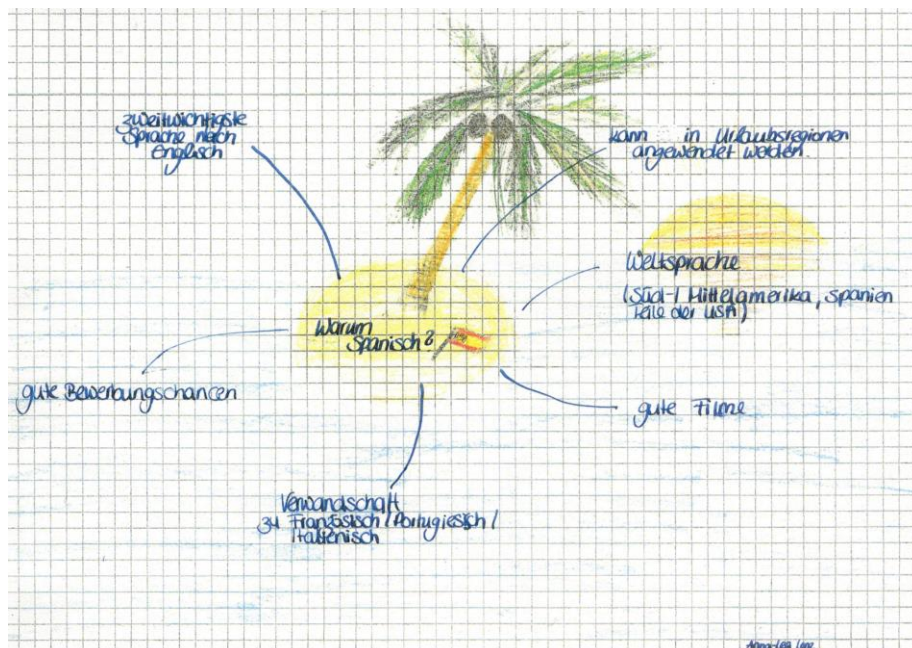 zweitwichtigste
Sprache nach
Englisch
kann in Urlaubsregionen
angewendet werden.
Weltsprache
(Süd-/Mittelamerika, Spanien
Teile der USA)
Warum
Spanisch?
gute Bewerbungschancen
gute Filme
Verwandschaft
zu Französisch/Portugiesisch/
Italienisch